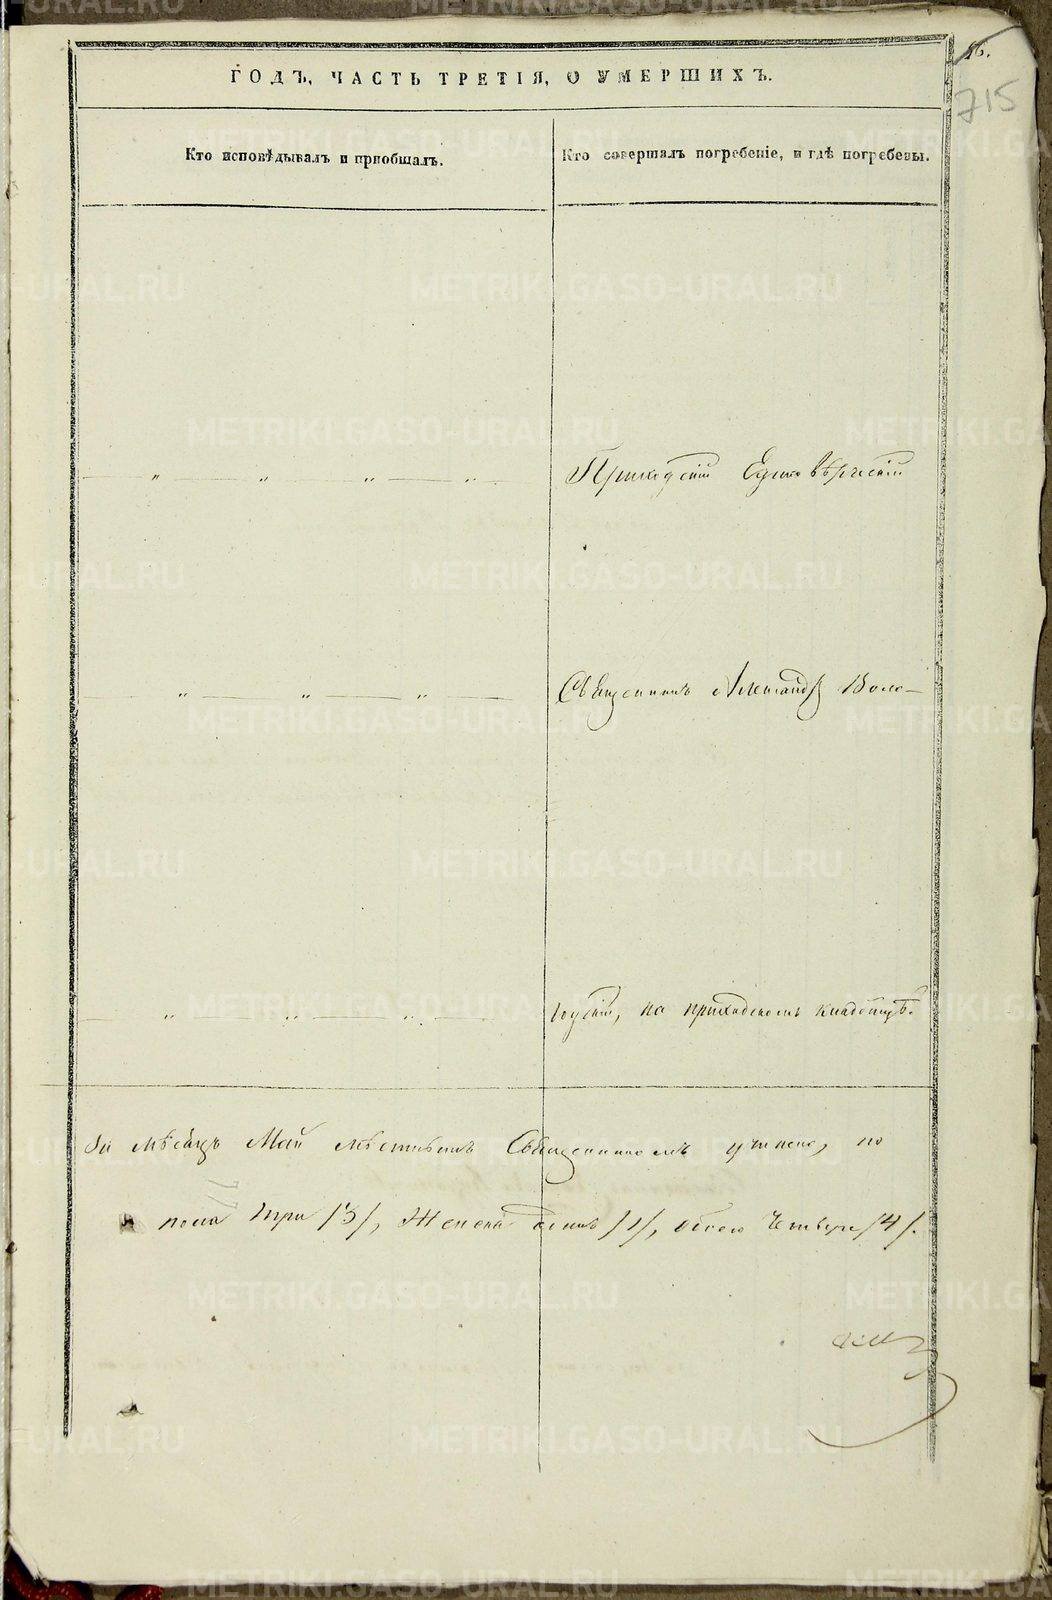 16.
715
ГОДЪ, ЧАСТЬ ТРЕТІЯ, О УМЕРШИХЪ.
Кто исповѣдывалъ и пріобщалъ.
Кто совершалъ погребеніе, и гдѣ погребены.
" " " " Приходскій Единовѣрческій
" " " Священникъ Александръ Воло-
" " " годскій, на приходскомъ кладбищѣ.
За мѣсяцъ Май мѣстнымъ Священникомъ учинено, по
пола три /3/, Женска одинъ /1/, обоего четыре /4/.
METRIKI.GASO-URAL.RU